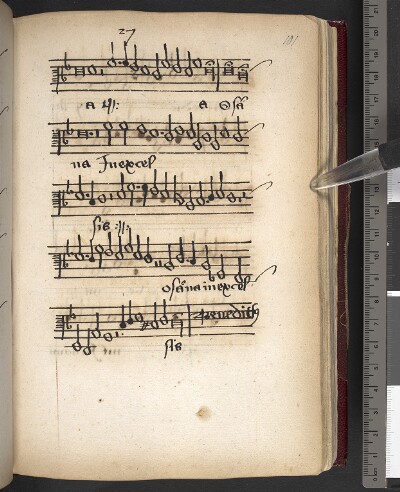 27
101
a :||: a Osã
na In excel
sis :||:
osãna in excel
Benedict9
sis